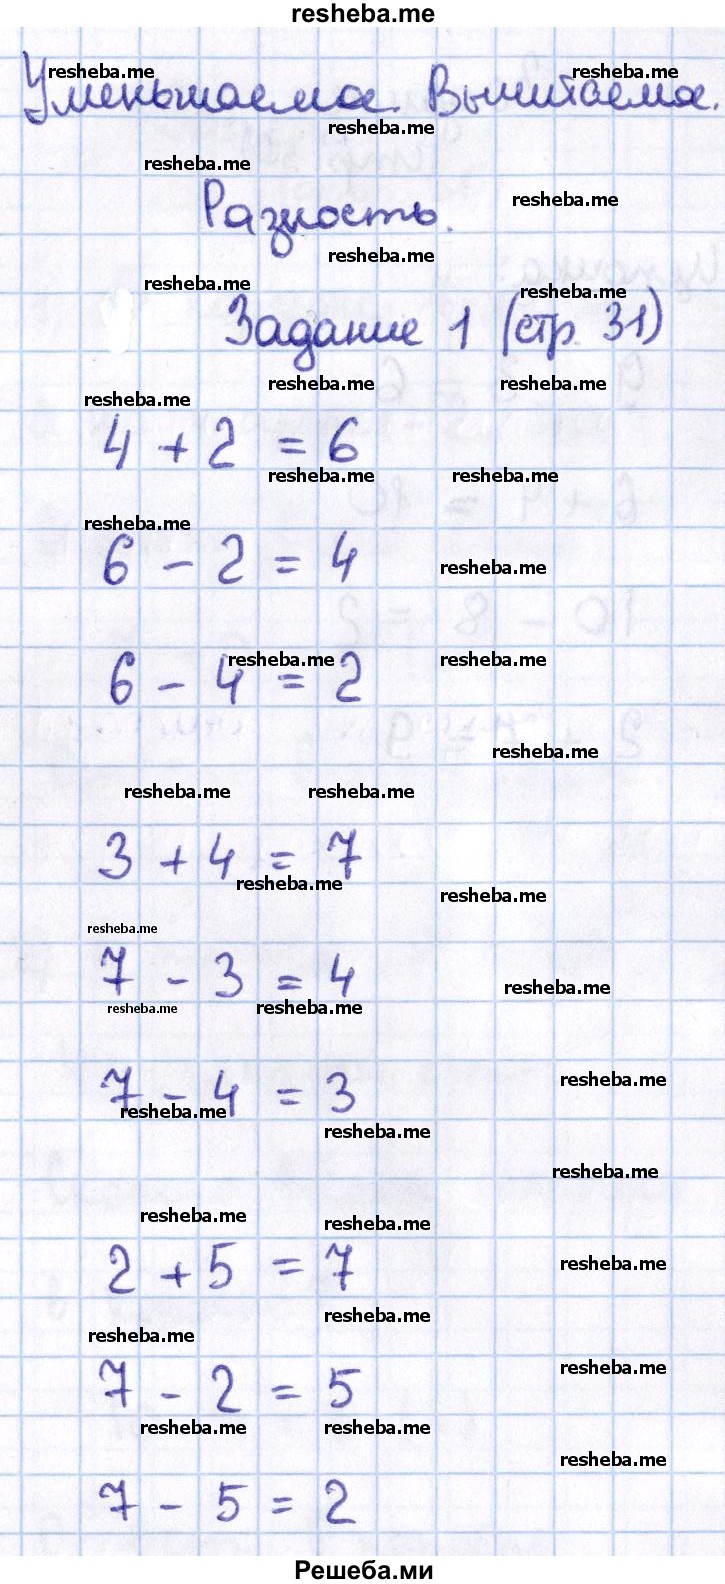 resheba.me
Уменьшаема. Вычитаема.
Разность.
Задание 1 (стр. 31)
4 + 2 = 6
6 - 2 = 4
6 - 4 = 2
3 + 4 = 7
7 - 3 = 4
7 - 4 = 3
2 + 5 = 7
7 - 2 = 5
7 - 5 = 2
Решеба.ми